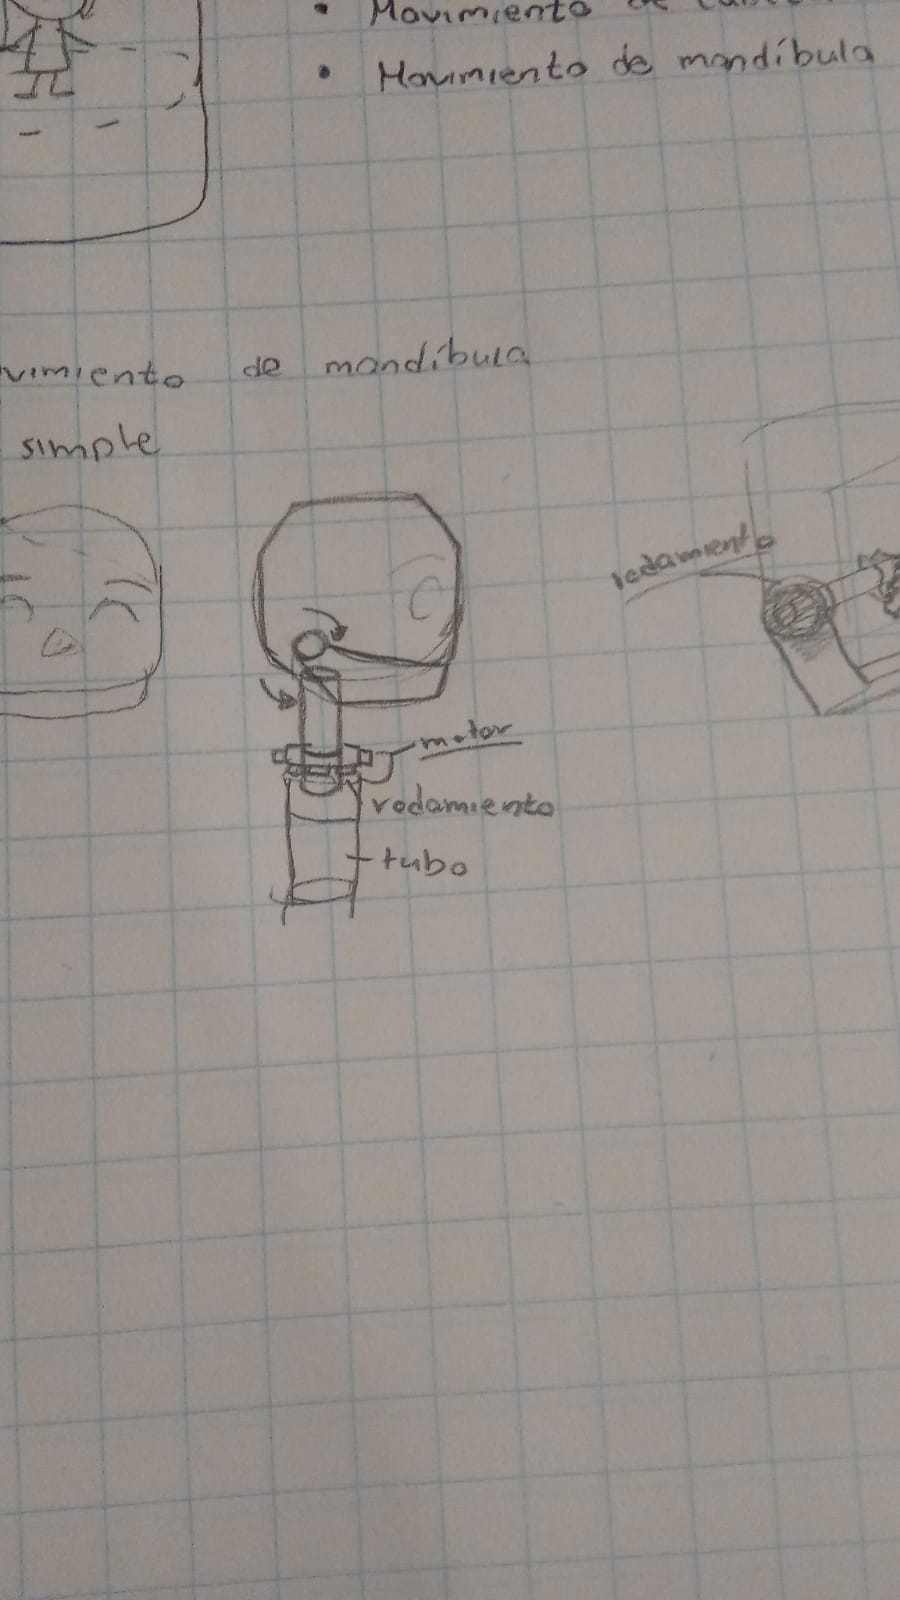 • Movimiento de
• Movimiento de mandíbula
vimiento de mandíbula
simple
rodamiento
motor
rodamiento
tubo